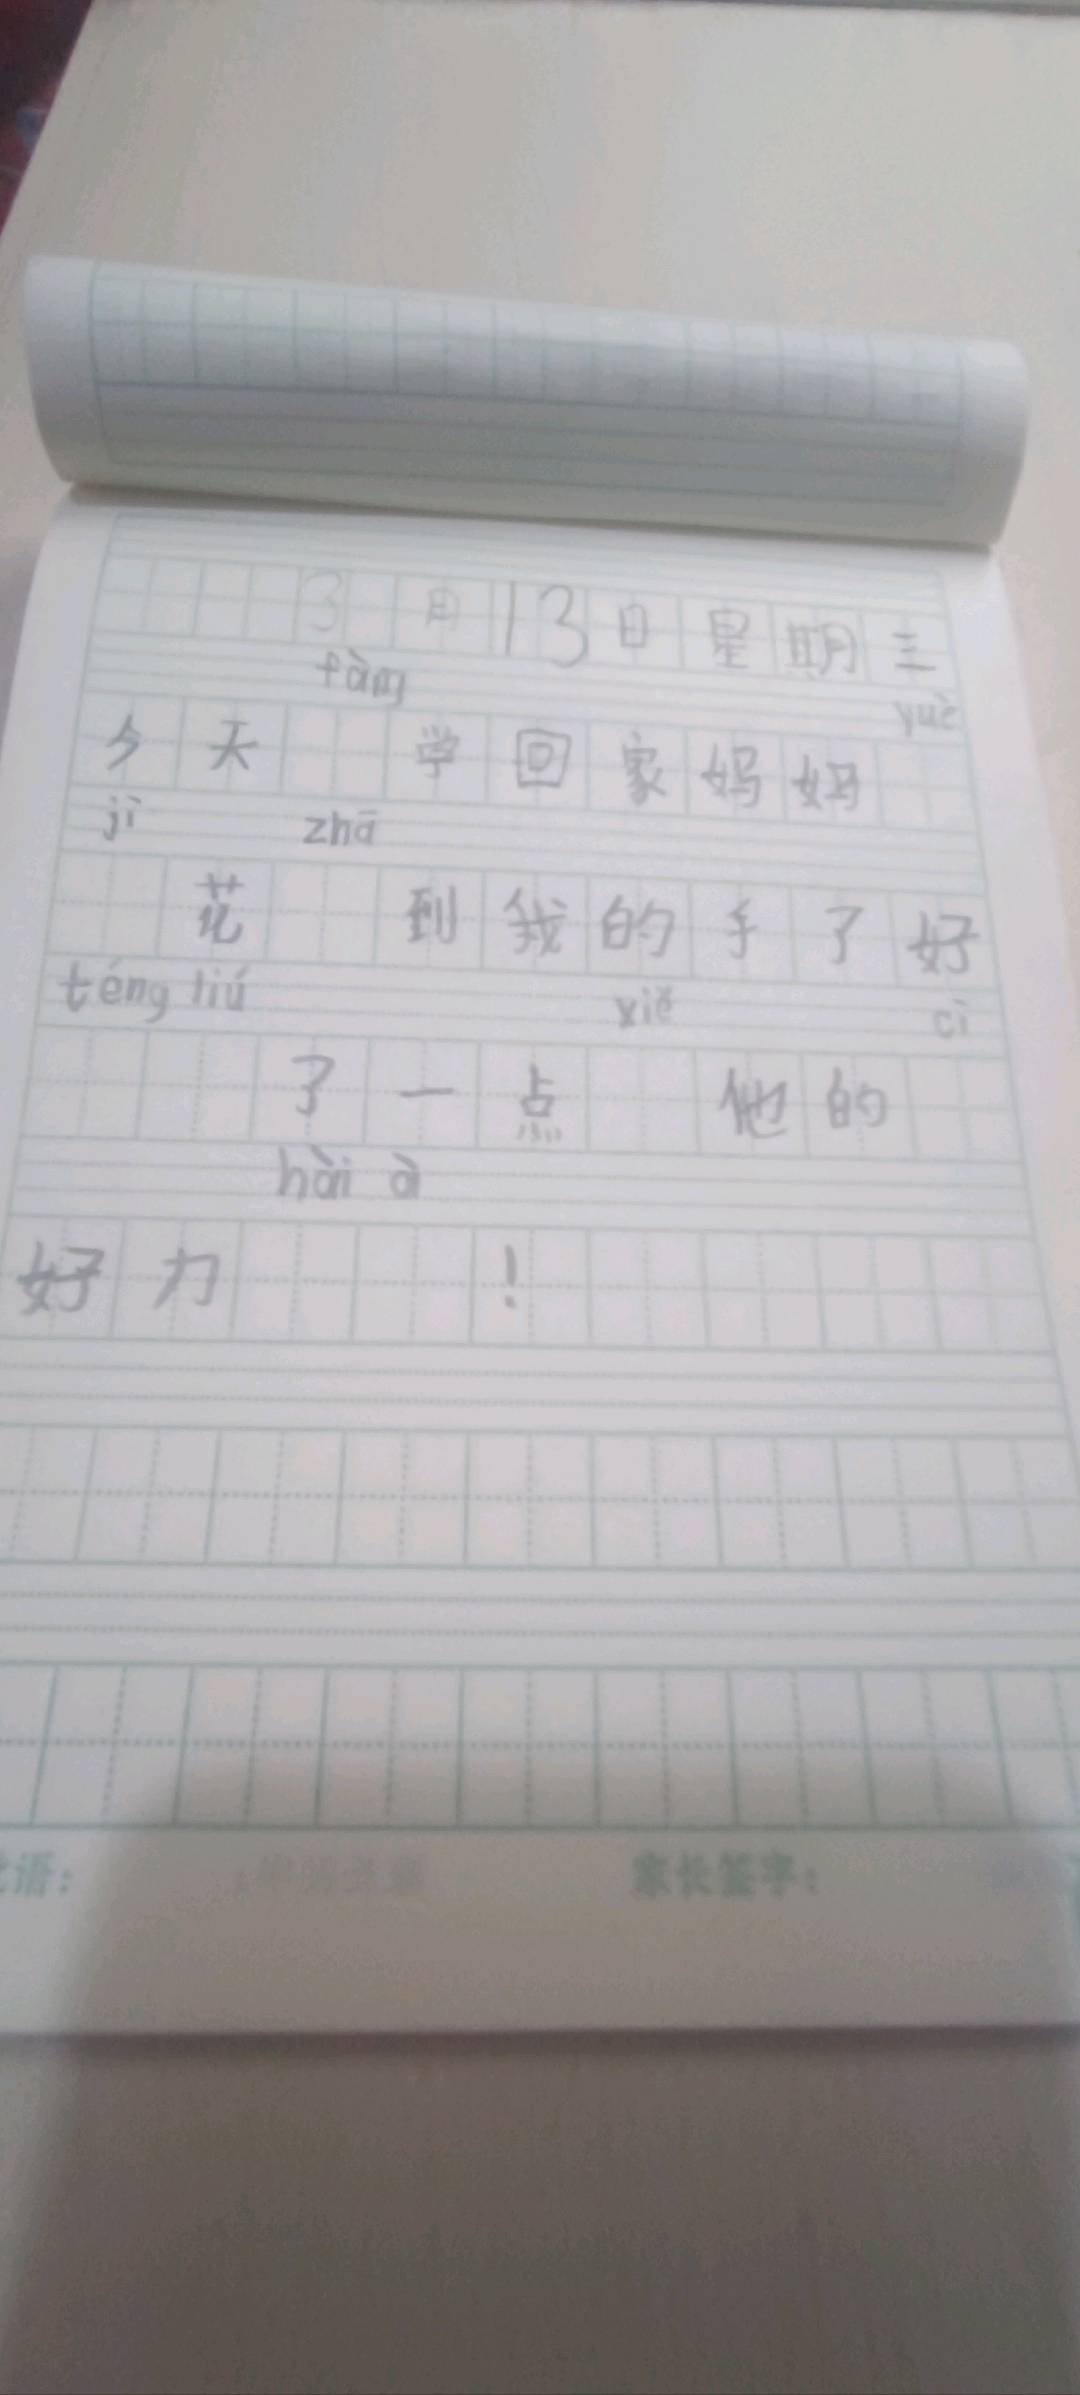 3月13日星期三
fàng yuè
今天 学回家妈妈
jì zhā
花 到我的手了好
téng liú xiě cì
了一点 他的
hài à
好力 !
语: 家长签字: